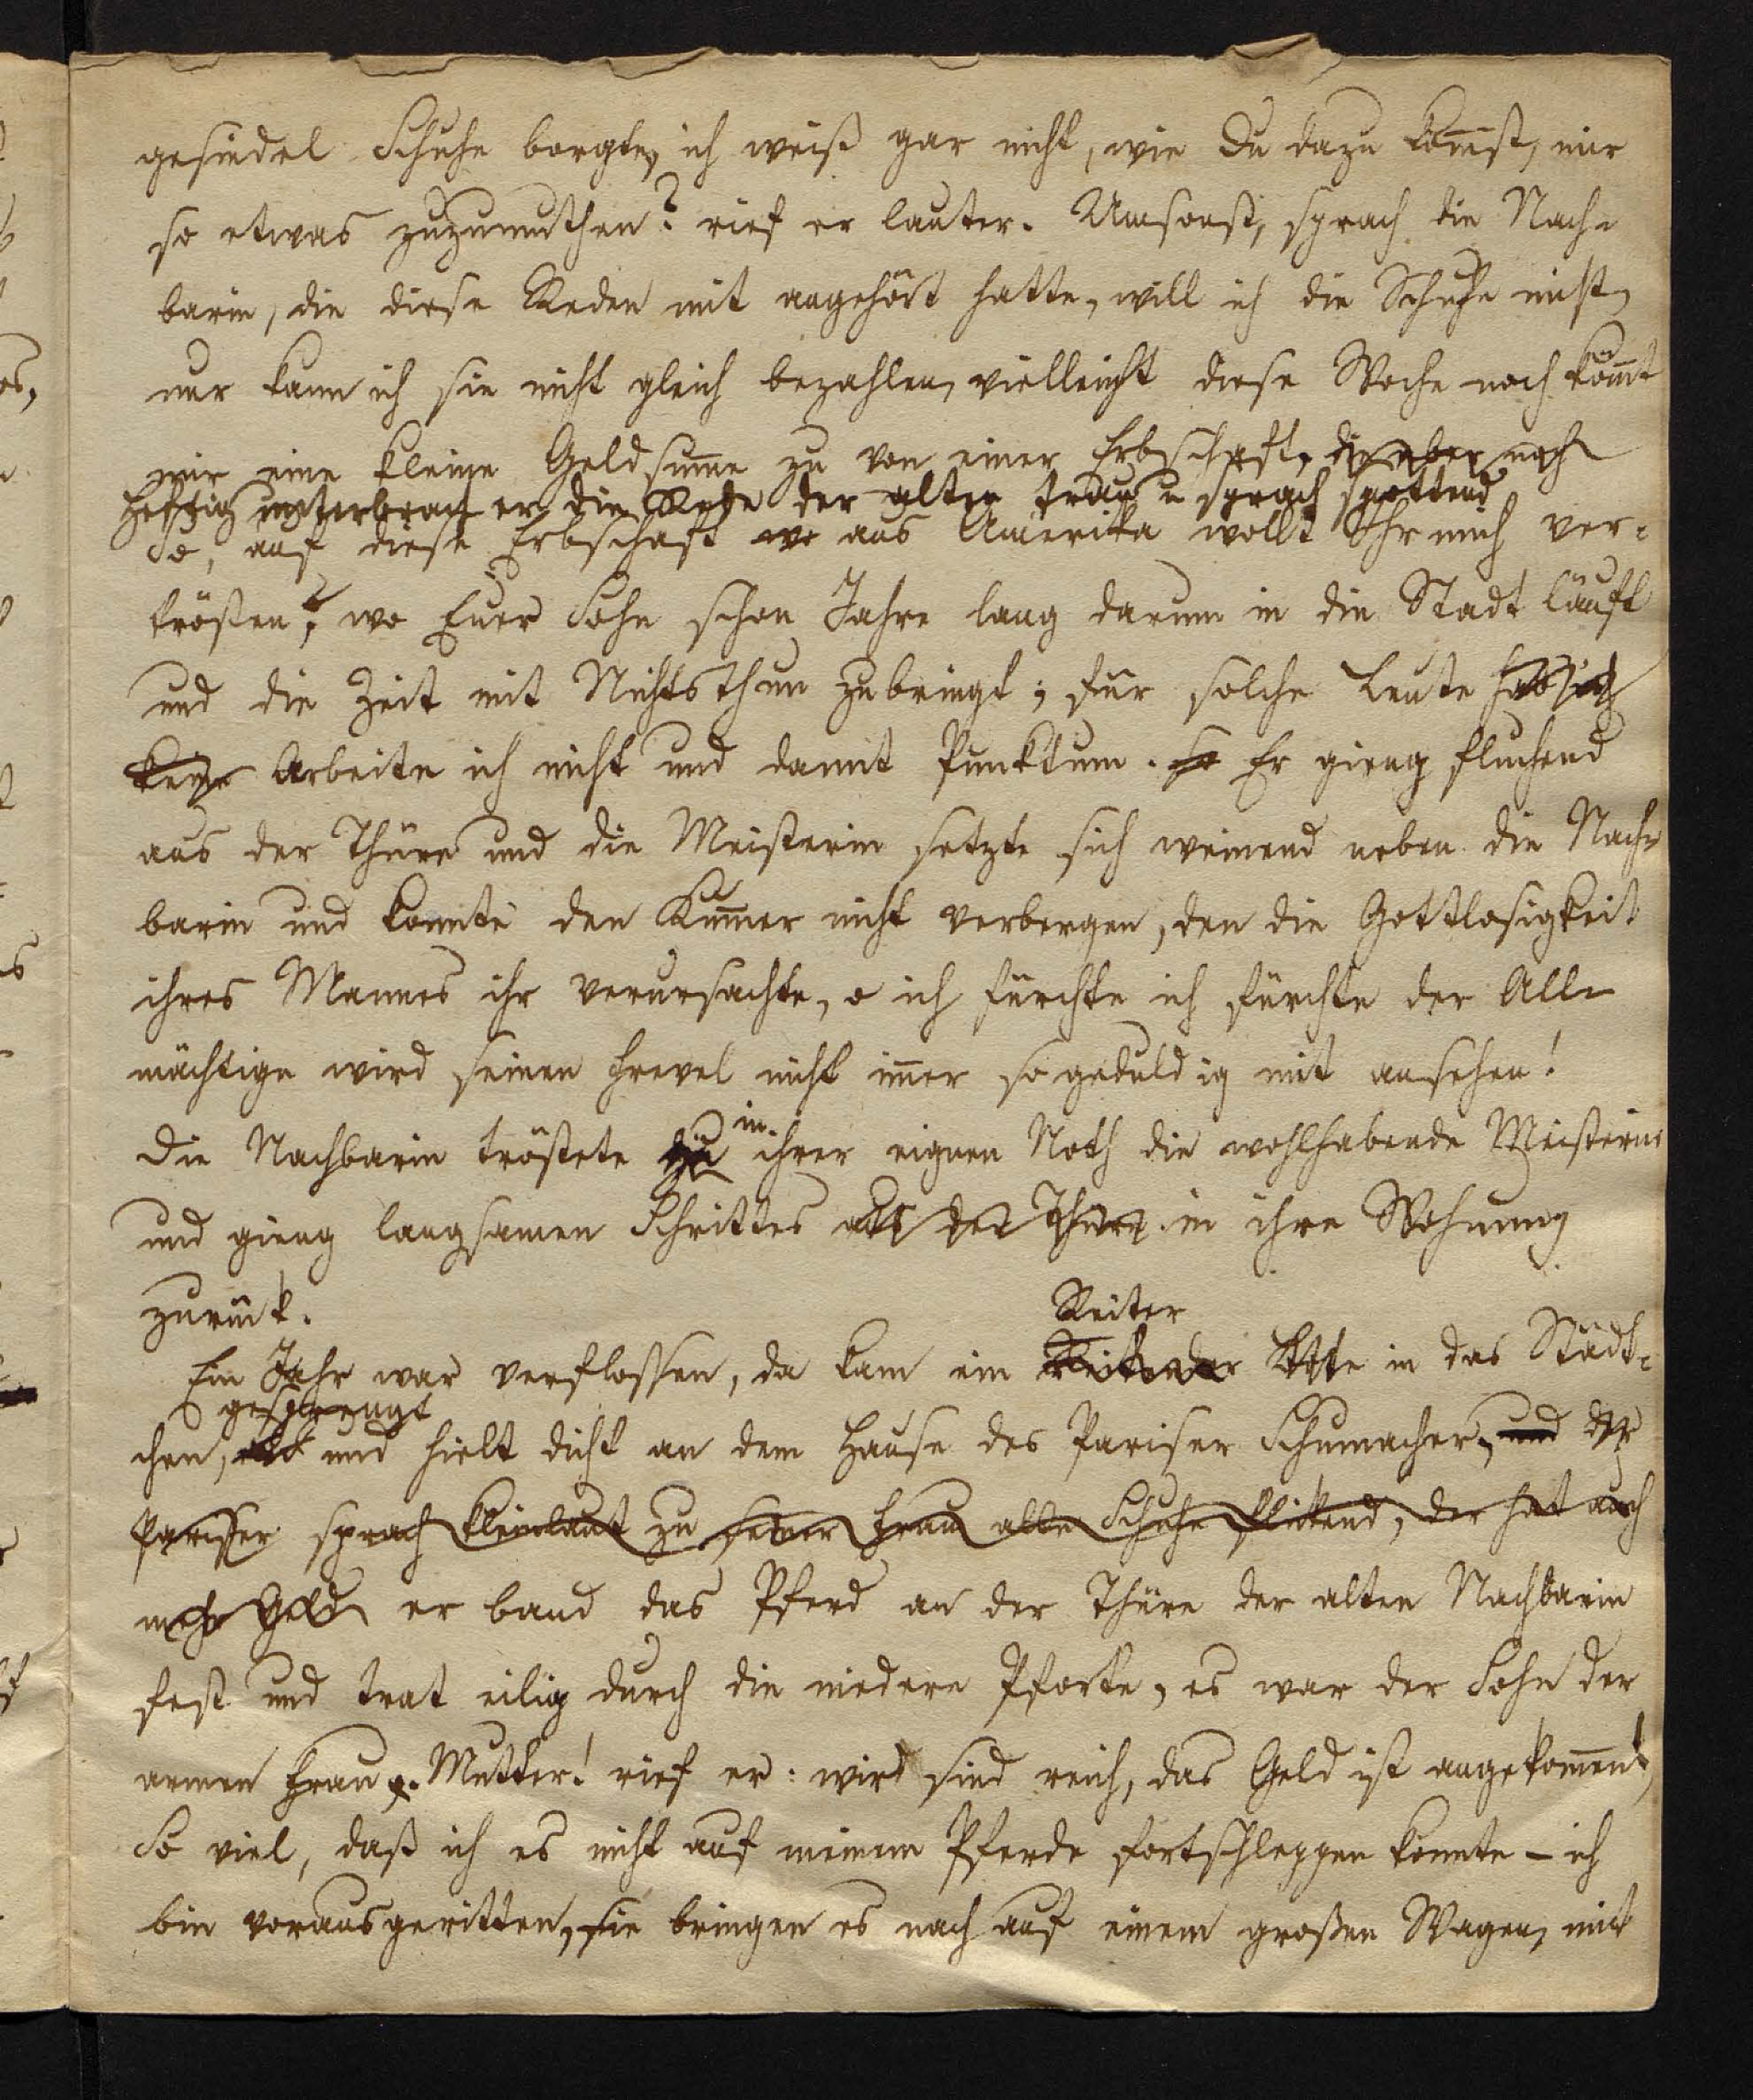 gesindel Schuhe borgte, ich weiß gar nicht, wie Du dazu kom̄st, mir
so etwas zuzumuthen? rief er lauter. Umsonst, sprach die Nach-
barin, die diese Reden mit angehört hatte, will ich die Schuhe nicht,
nur kann ich sie nicht gleich bezahlen, vielleicht diese Woche noch köm̄t
mir eine kleine Geldsum̄e zu von einer Erbschaft, die aber noch
heftig unterbrach er die Rede der alten Frau u sprach spottend
So, auf diese Erbschaft wo aus Amerika wollt Ihr mich ver-
trösten?, wo Euer Sohn schon Jahre lang darum in die Stadt läuft
und die Zeit mit Nichtsthun zubringt; für solche Leute hab ich
keine Arbeite ich nicht und damit Punktum. so Er gieng fluchend
aus der Thüre und die Meisterin setzte sich weinend neben die Nach-
barin und konnte den Kum̄er nicht verbergen, den die Gottlosigkeit
ihres Mannes ihr verursachte, o ich fürchte ich fürchte der All-
mächtige wird seinen Frevel nicht im̄er so geduldig mit ansehen!
Die Nachbarin tröstete zu in ihrer eignen Noth die wohlhabende Meisterin
und gieng langsamen Schrittes aus der Thüre in ihre Wohnung
zurück.
Reiter
Ein Jahr war verflossen, da kam ein Reitender Bote in das Städt-
gesprengt
chen, und hielt dicht an dem Hause des Pariser Schumacher, und der
Parisser sprach kleinlaut zu seiner Frau alte Schuhe flickend, der hat auch
mehr Geld er band das Pferd an der Thüre der alten Nachbarin
fest und trat eilig durch die niedere Pforte, es war der Sohn der
armen Frau. Mutter! rief er: wir sind reich, das Geld ist angekom̄en,
So viel, daß ich es nicht auf meinem Pferde fortschleppen konnte – ich
bin vorausgeritten, sie bringen es nach auf einem großen Wagen, mit